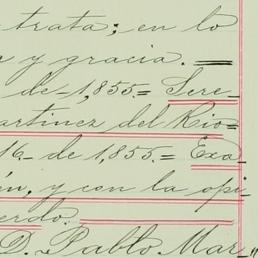 trata; en lo
y gracia. =
de 1,855. = Sere-
artinez del Rio=
16 de 1,855. = Exa
ón, y con la opi-
erdo.
D. Pablo Mar-"